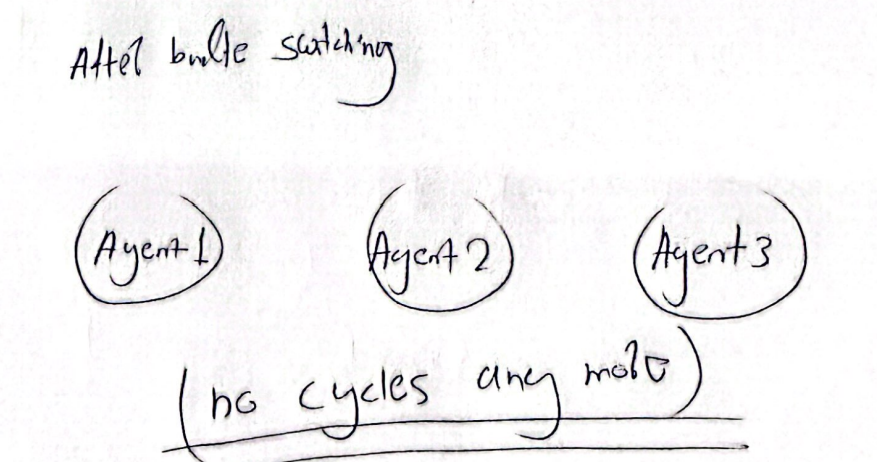 After bundle switching
Agent 1 Agent 2 Agent 3
(no cycles any more)